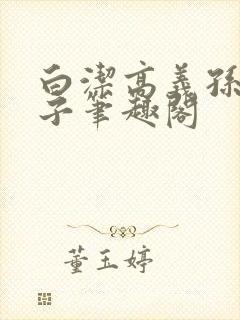 白潔高義孫
子筆趣閣
董玉婷